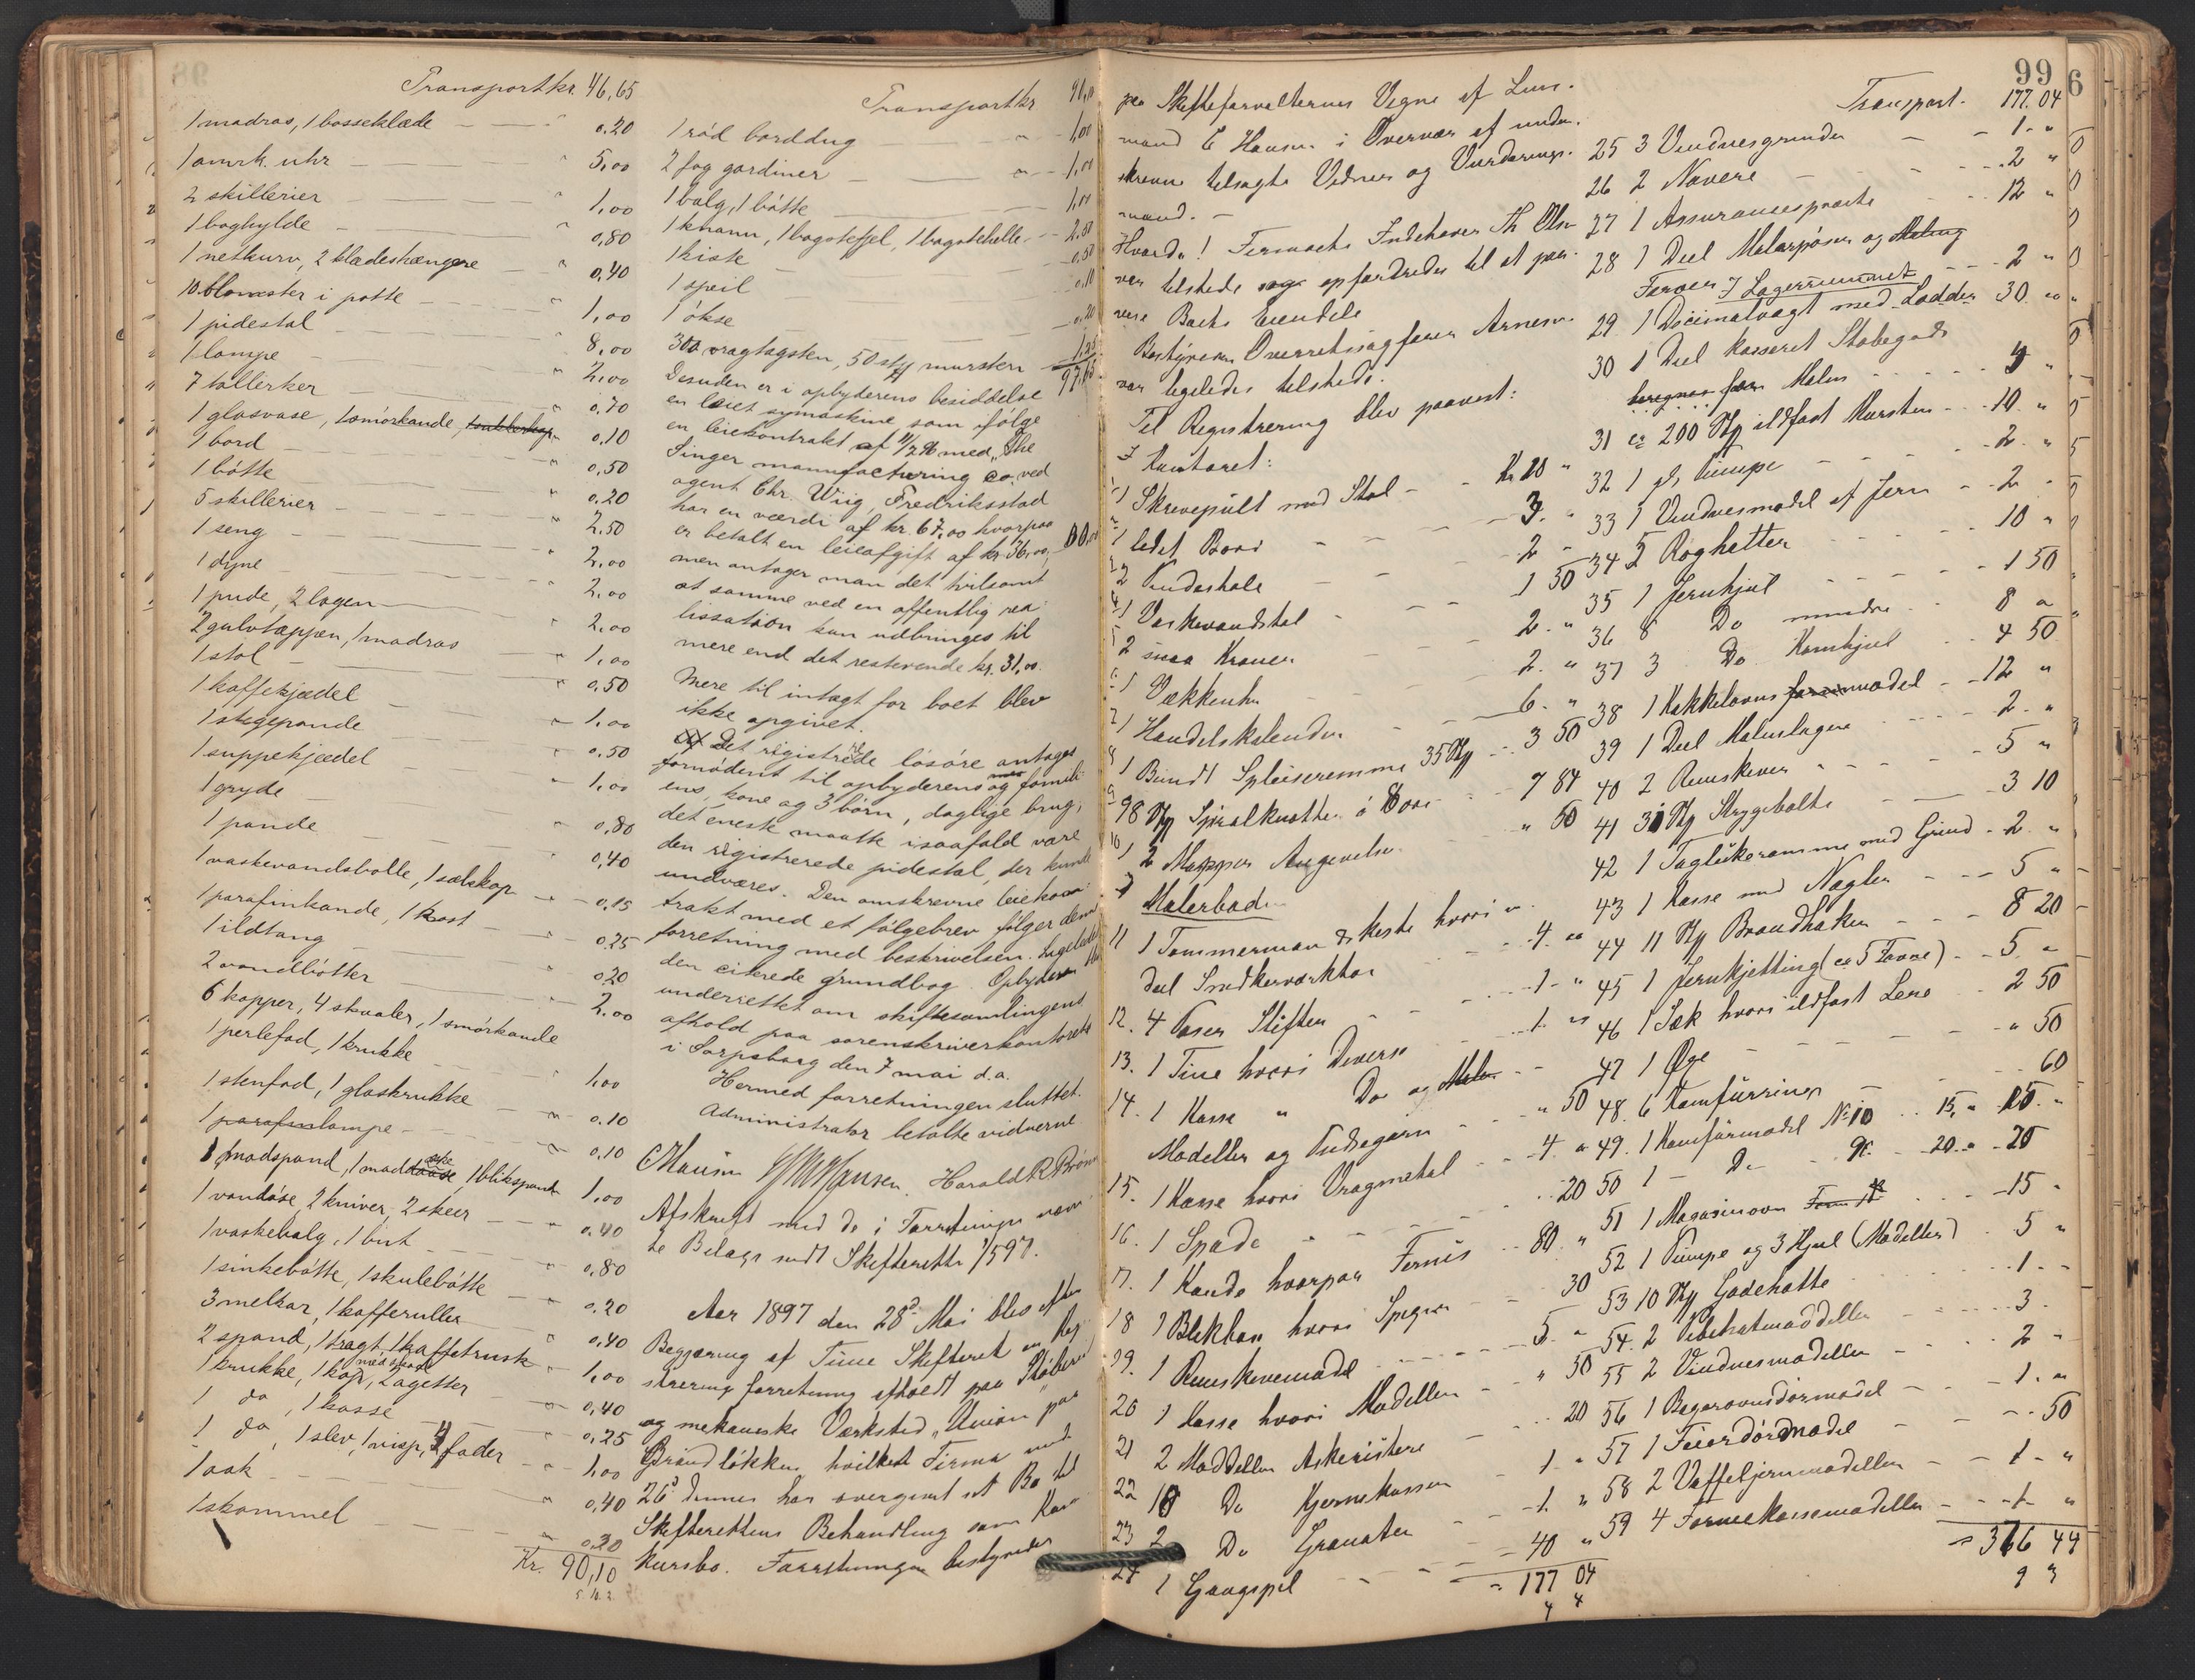 Transport kr. 46,65
1 madras, 1 bosseklæde - - " 0.20
1 amrk. uhr - - " 5,00
2 skillerier - - " 1,00
1 boghylde - - " 0,80
1 netkurv, 2 klædeshængere - " 0,40
10 blomster i potte - - " 1,00
1 pidestal - - " 8,00
1 lampe - - " 2,00
7 tallerker - - " 0,70
1 glasvase, 1 smörkande, - 0,10
1 bord - - " 0,50
1 bötte - - " 0.20
5 skillerier - - " 2.50
1 seng - - " 2,00
1 dyne - - " 2,00
1 pude, 2 lagen - - " 2,00
2 gulvtæppen, 1 madras - " 1,00
1 stol - - " 0,50
1 kaffekjædel - - " 1,00
1 stegepande - - " 0.50
1 suppekjædel - - " 1,00
1 gryde - - " 0,80
1 pande - - " 0,40
1 vaskevandsbolle, 1 sælskop - " 0,15
1 parafinkande, 1 kost - " 0,25
1 ildtang - - " 0,20
2 vandbötter - - " 2,00
6 kopper, 4 skaaler, 1 smörkande
1 perlefad, 1 krukke - " 1,00
1 stenfad, 1 glaskrukke - " 0.10
1 parafinlampe - - " 0,10
1 madspand, 1 maddaaseske, 1 blikspand " 1,00
1 vandöse, 2 kniver, 2 skeer - " 0.40
1 vaskebalg, 1 bint - " 0,80
1 sinkebötte, 1 skulebötte - " 0.20
3 melkar, 1 kafferuller - " 0.40
2 spand, 1 tragt, 1 kaffetrusk " 1,00
1 krukke, 1 kop, 2 agetter - " 0,40
1 do, 1 kasse - " 0,25
1 do, 1 slev, 1 visp, 4 fader - " 1,00
1 aak - - " 0,40
1 skammel - - " 0,20
Kr. 90,10
Transport kr 91,10
1 röd borddug - " - 1,00
2 fag gardiner - " - 1,00
1 balg, 1 bötte - 1,00
1 knann, 1 bagsteffel, 1 bagstehelle - 2.80
1 kiste - 0,50
1 speil - 0,10
1 ökse - 0,20
300 vragtagsten, 50 stkk mursten 1,25
97,65
Desuden er i opbyderens besiddelse
en leiet symaskine, som ifölge
en leiekontrakt af 11/2 96 med „The
Singer manufacturing co. ved
agent Chr. Wiig, Fredriksstad
har en værdi af kr. 67,00 hvorpaa
er betalt en leieafgift af kr 36,00,
men antager man det tvilsomt
at samme ved en offentlig rea-
lissation kan udbringes til
mere end det resterende kr. 31,00.
Mere til indtægt for boet blev
ikke opgivet.
Det registrerede lösöre antages
fornödent til opbyderens og famili-
ens, kone og 3 börn, daglige brug,
det eneste maatte isaafald være
den registrerede pidestal, der kunde
undværes. Den omskrevne leiekon-
trakt med et fölgebrev fölger denne
forretning med beskrivelsen. Ligeledes
den citerede grundbog. Opbyderen blev
underrettet om skiftesamlingens
afhold paa sorenskriverkontoret
i Sarpsborg den 7 mai d.a.
Hermed forretningen sluttet.
Administrator betalte vidnerne
C Hansen Harald R Brönn
Afskrift med de i Forretningen nævn
te Bilage sendt Skifteretten 1/5 97.
Aar 1897 den 28d Mai blev efter
Begjæring af Tune Skifteret en Reg
strering forretning afholdt paa Stöberi
og mekaniske Værksted „Union" paa
Grandlökken hvilket Firma under
26d dennes har overgivet sit Bo til
Skifterettens Behandling som Kon
kursbo. Forretningen bestyredes
99
paa Skifteforvalterens Vegne af Lens-
mand C Hansen i Overvær af under-
skrevne tilsagte Vidner og Vurderings-
mænd. -
Hvorda! Firmaets Indehaver Th Olsen
var tilstede og opfordredes til at paa-
vise Boets Eiendele
Bestyreren Overretssagförer Arnesen
var ligeledes tilstede.
Til Registrering blev paavist:
I Kontoret:
1 1 Skrivepult med Stol - Kr 20 "
2 1 lidet Bord - - 3. "
3 2 Pindestole - - 2 "
4 1 Vaskevandstel - - 1 50
5 2 smaa Kraner - - 2. "
6 1 Vækkeuhr - - 2. "
7 1 Handelskalender - - 6. "
8 1 Bundt Spleiseremme 35 Kg - 3 50
9 98 Kg Spiralknotter á 8 öre - 7 84
10 1 2 Mapper Angivelser - " 50
I Malerbod
11 1 Tommermandskiste hvori en
del Snedkerværktöi - 4. "
12. 4 Poser Stifter - - 1. "
13. 1 Tine hvori Diverse - 1. "
14. 1 Kasse " Do og
Modeller og Indsegarn - " 50
15. 1 Kasse hvori Vragmetal - 4. "
16. 1 Spade - - 20
17. 1 Kande hvorpaa Fernis - 80. "
18 1 Blikbox hvori Spiger - 30
19. 1 Remskivemodel - 5. "
20 1 Kasse hvori Modeller - " 50
21 2 Moddeller Askeristere - 20
22 18 Do Kjernekasser - 1 "
23 2 Do Granater - 1. "
24 1 Gangspil - - 40 "
177 04
Transport. 177.04
25 3 Vinduesgrinder - - 1. "
26 2 Navere - - 2 "
27 1 Assuransesprøite - 12 "
28 1 Deel Malerpösser og Maling
Farver I Lagerrummet - 2 "
29 1 Decimalvægt med Lodder 30. "
30 1 Deel kasseret Stobegods
beregnes som Malm - 4 "
31 ca 200 Stk ildfast Mursten - 10. "
32 1 st. Pumpe - - 2. "
33 1 Vinduesmodel af Jern - 2 -
34 5 Röghetter - - 10 "
35 1 Jernhjul - - 1 50
36 8 Do mindre - 8 "
37 3 Do Kamhjul - 4 50
38 1 Kakkelovnsmodel - 12 "
39 1 Deel Malmslagge - 2. "
40 2 Remskiver - - 5 "
41 31 Kg Strygebolte - 3 10
42 1 Taglukeramme med Grind - 2. "
43 1 Kasse med Nagler - 5 "
44 11 Stk Brandhaker - 8 20
45 1 Jernkjetting (ca 5 Favne) - 5 "
46 1 Sæk hvori ildfast Lere - 2 50
47 1 Öxe - - " 50
48. 6 Komfürringer - - 60
49. 1 Komfürmodel No 10 15,- 15. "
50 1 - Do - 9. - 20 - 20
51 1 Magasinovn - 15 -
52 1 Pumpe og 3 Hjul (Modeller) 5 "
53 10 Kg Godehatte - 1. -
54. 2 Vibehatmoddeller - 3.
55 2 Vinduesmodeller - 2 -
56 1 Bagerovnsdörmodel - 1. "
57 1 Feierdörmodel - 50
58 2 Vaffeljernmodeller - 1 - "
59 4 Formekassemodeller - 1 "
366 44